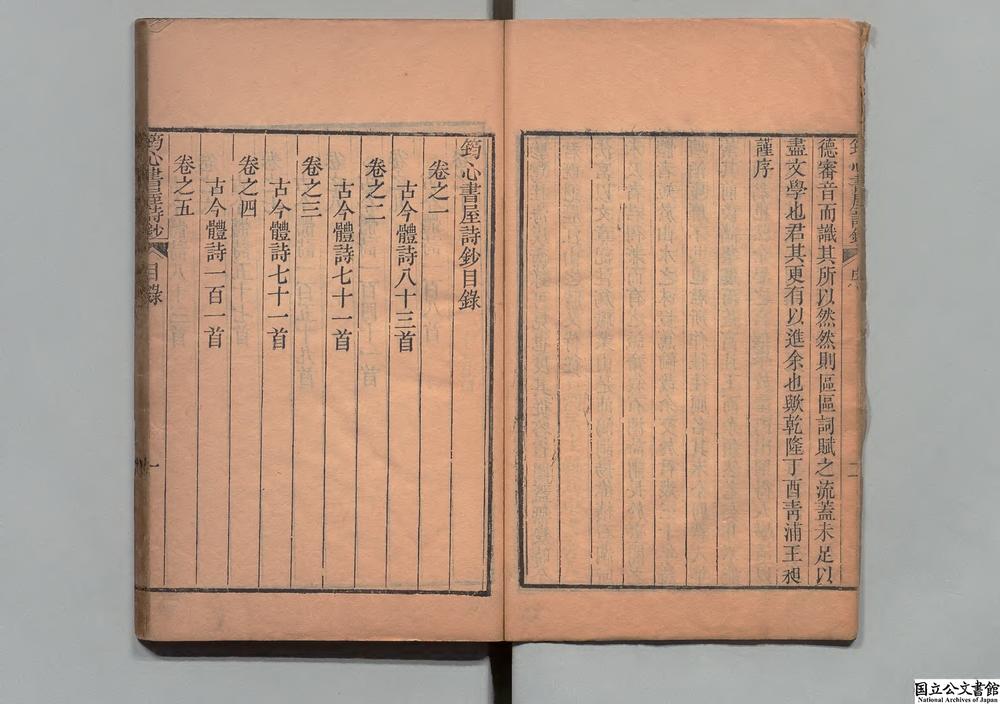 德審音而識其所以然然則區區詞賦之流蓋未足以
盡文學也君其更有以進余也歟乾隆丁酉青浦王昶
謹序
筠心書屋詩鈔目錄
卷之一
古今體詩八十三首
卷之二
古今體詩七十一首
卷之三
古今體詩七十一首
卷之四
古今體詩一百一首
卷之五
筠心書屋詩鈔
目錄
一
国立公文書館
National Archives of Japan